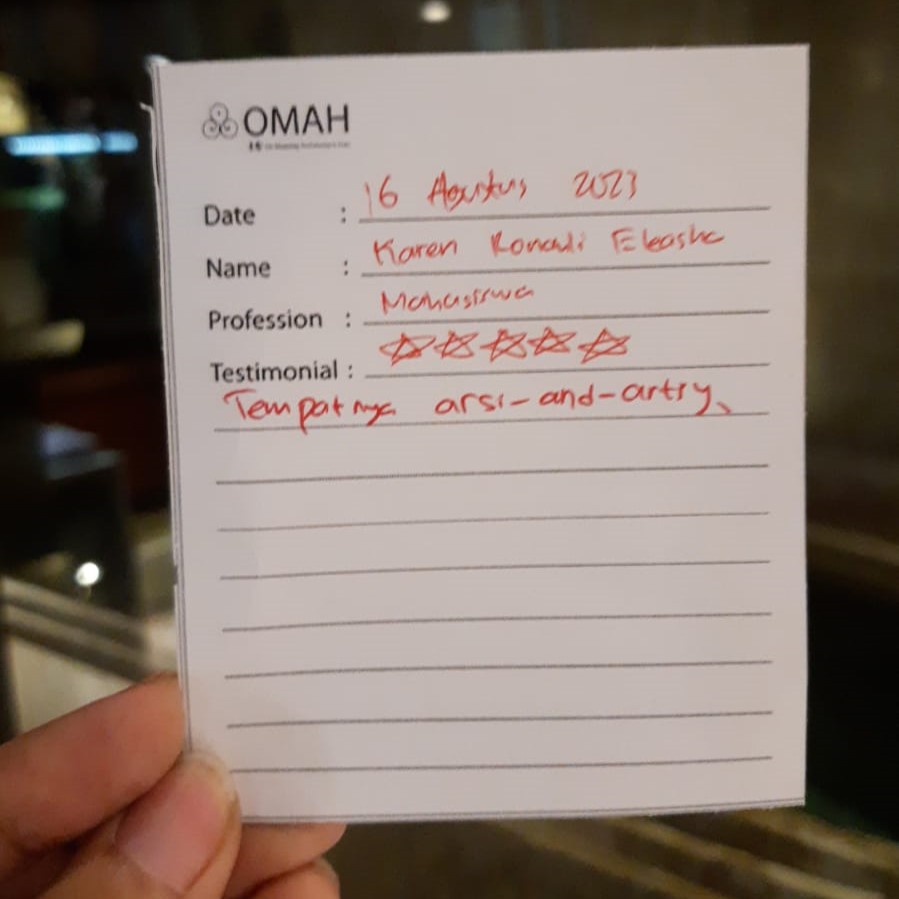 OMAH
Date : 16 Agustus 2023
Name : Karen
Profession : Mahasiswa
Testimonial :
Tempatnya arsi-and-artry,